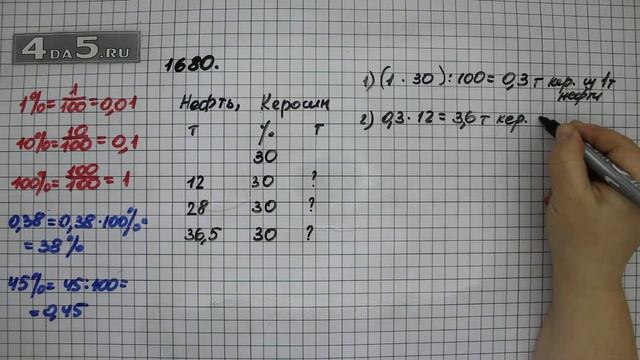 4DA5.RU
1680.
1% = 1/100 = 0,01
10% = 10/100 = 0,1
100% = 100/100 = 1
0,38 = 0,38 · 100% =
= 38%
45% = 45 : 100 =
= 0,45
Нефть, Керосин
т % т
30
12 30 ?
28 30 ?
36,5 30 ?
1) (1 · 30) : 100 = 0,3 т кер. из 1 т
нефти
2) 0,3 · 12 = 3,6 т кер.